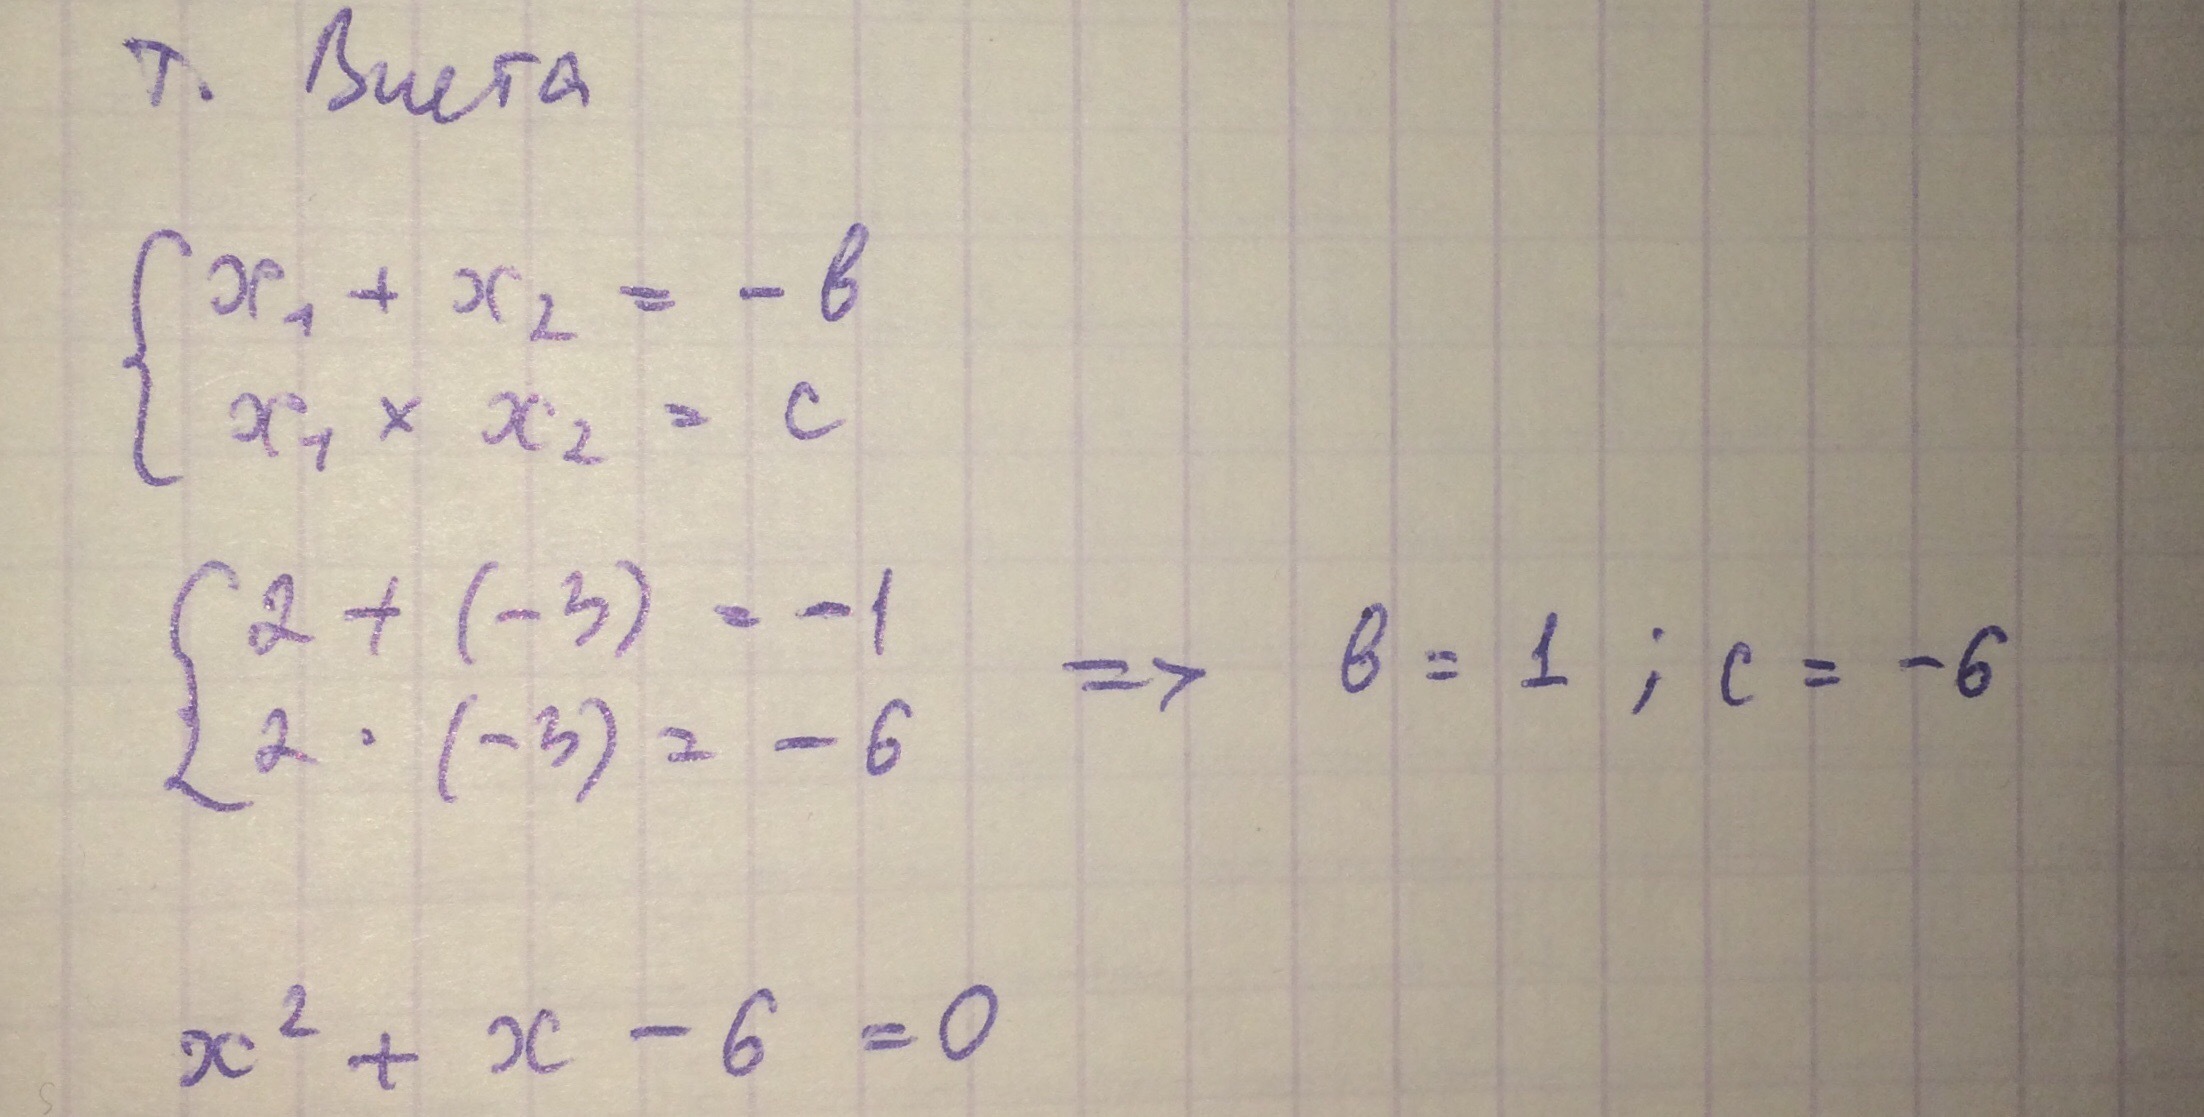 т. Виета
x₁ + x₂ = - в
x₁ × x₂ = c
2 + (-3) = -1
2 · (-3) = -6
=> в = 1 ; c = -6
x² + x - 6 = 0